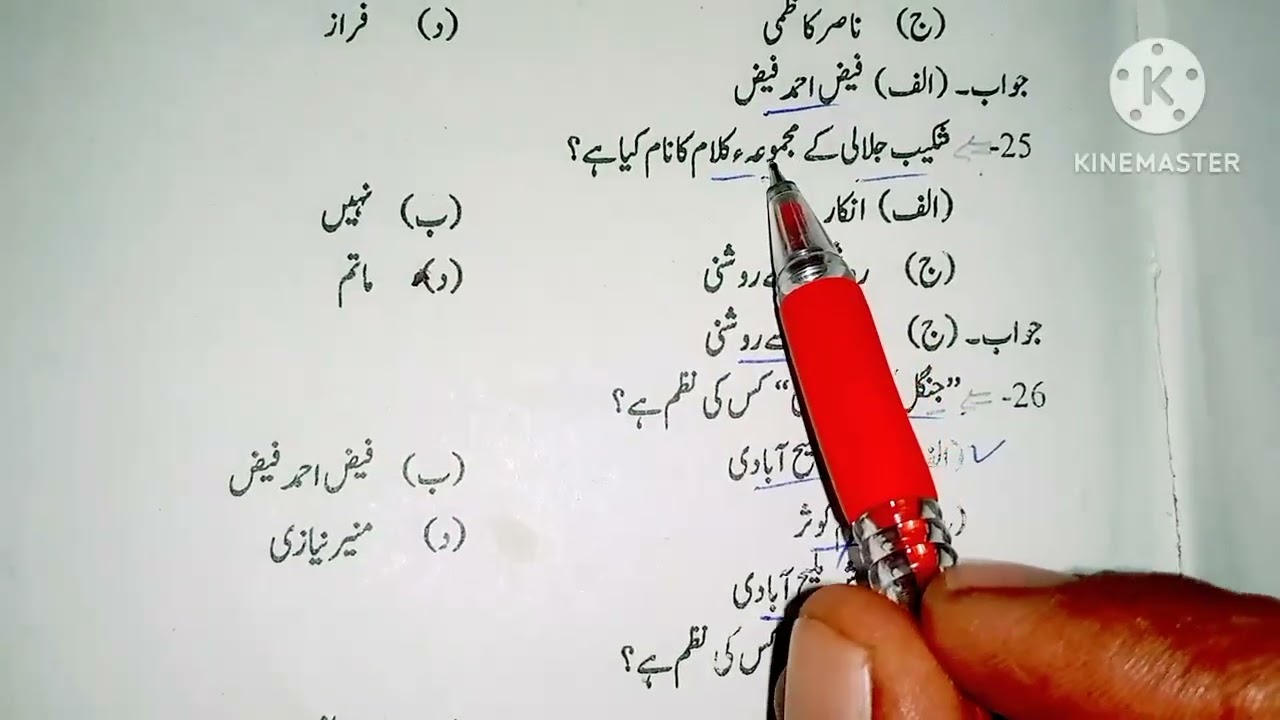 (ج) ناصر کاظمی (د) فراز
جواب۔ (الف) فیض احمد فیض
25- شکیب جلالی کے مجموعہء کلام کا نام کیا ہے؟
(الف) انکار (ب) نہیں
(ج) روشنی (د) ماتم
جواب۔ (ج) روشنی
26- "جنگل " کس کی نظم ہے؟
آبادی (ب) فیض احمد فیض
کوثر (د) منیر نیازی
ملیح آبادی
کس کی نظم ہے؟
KINEMASTER